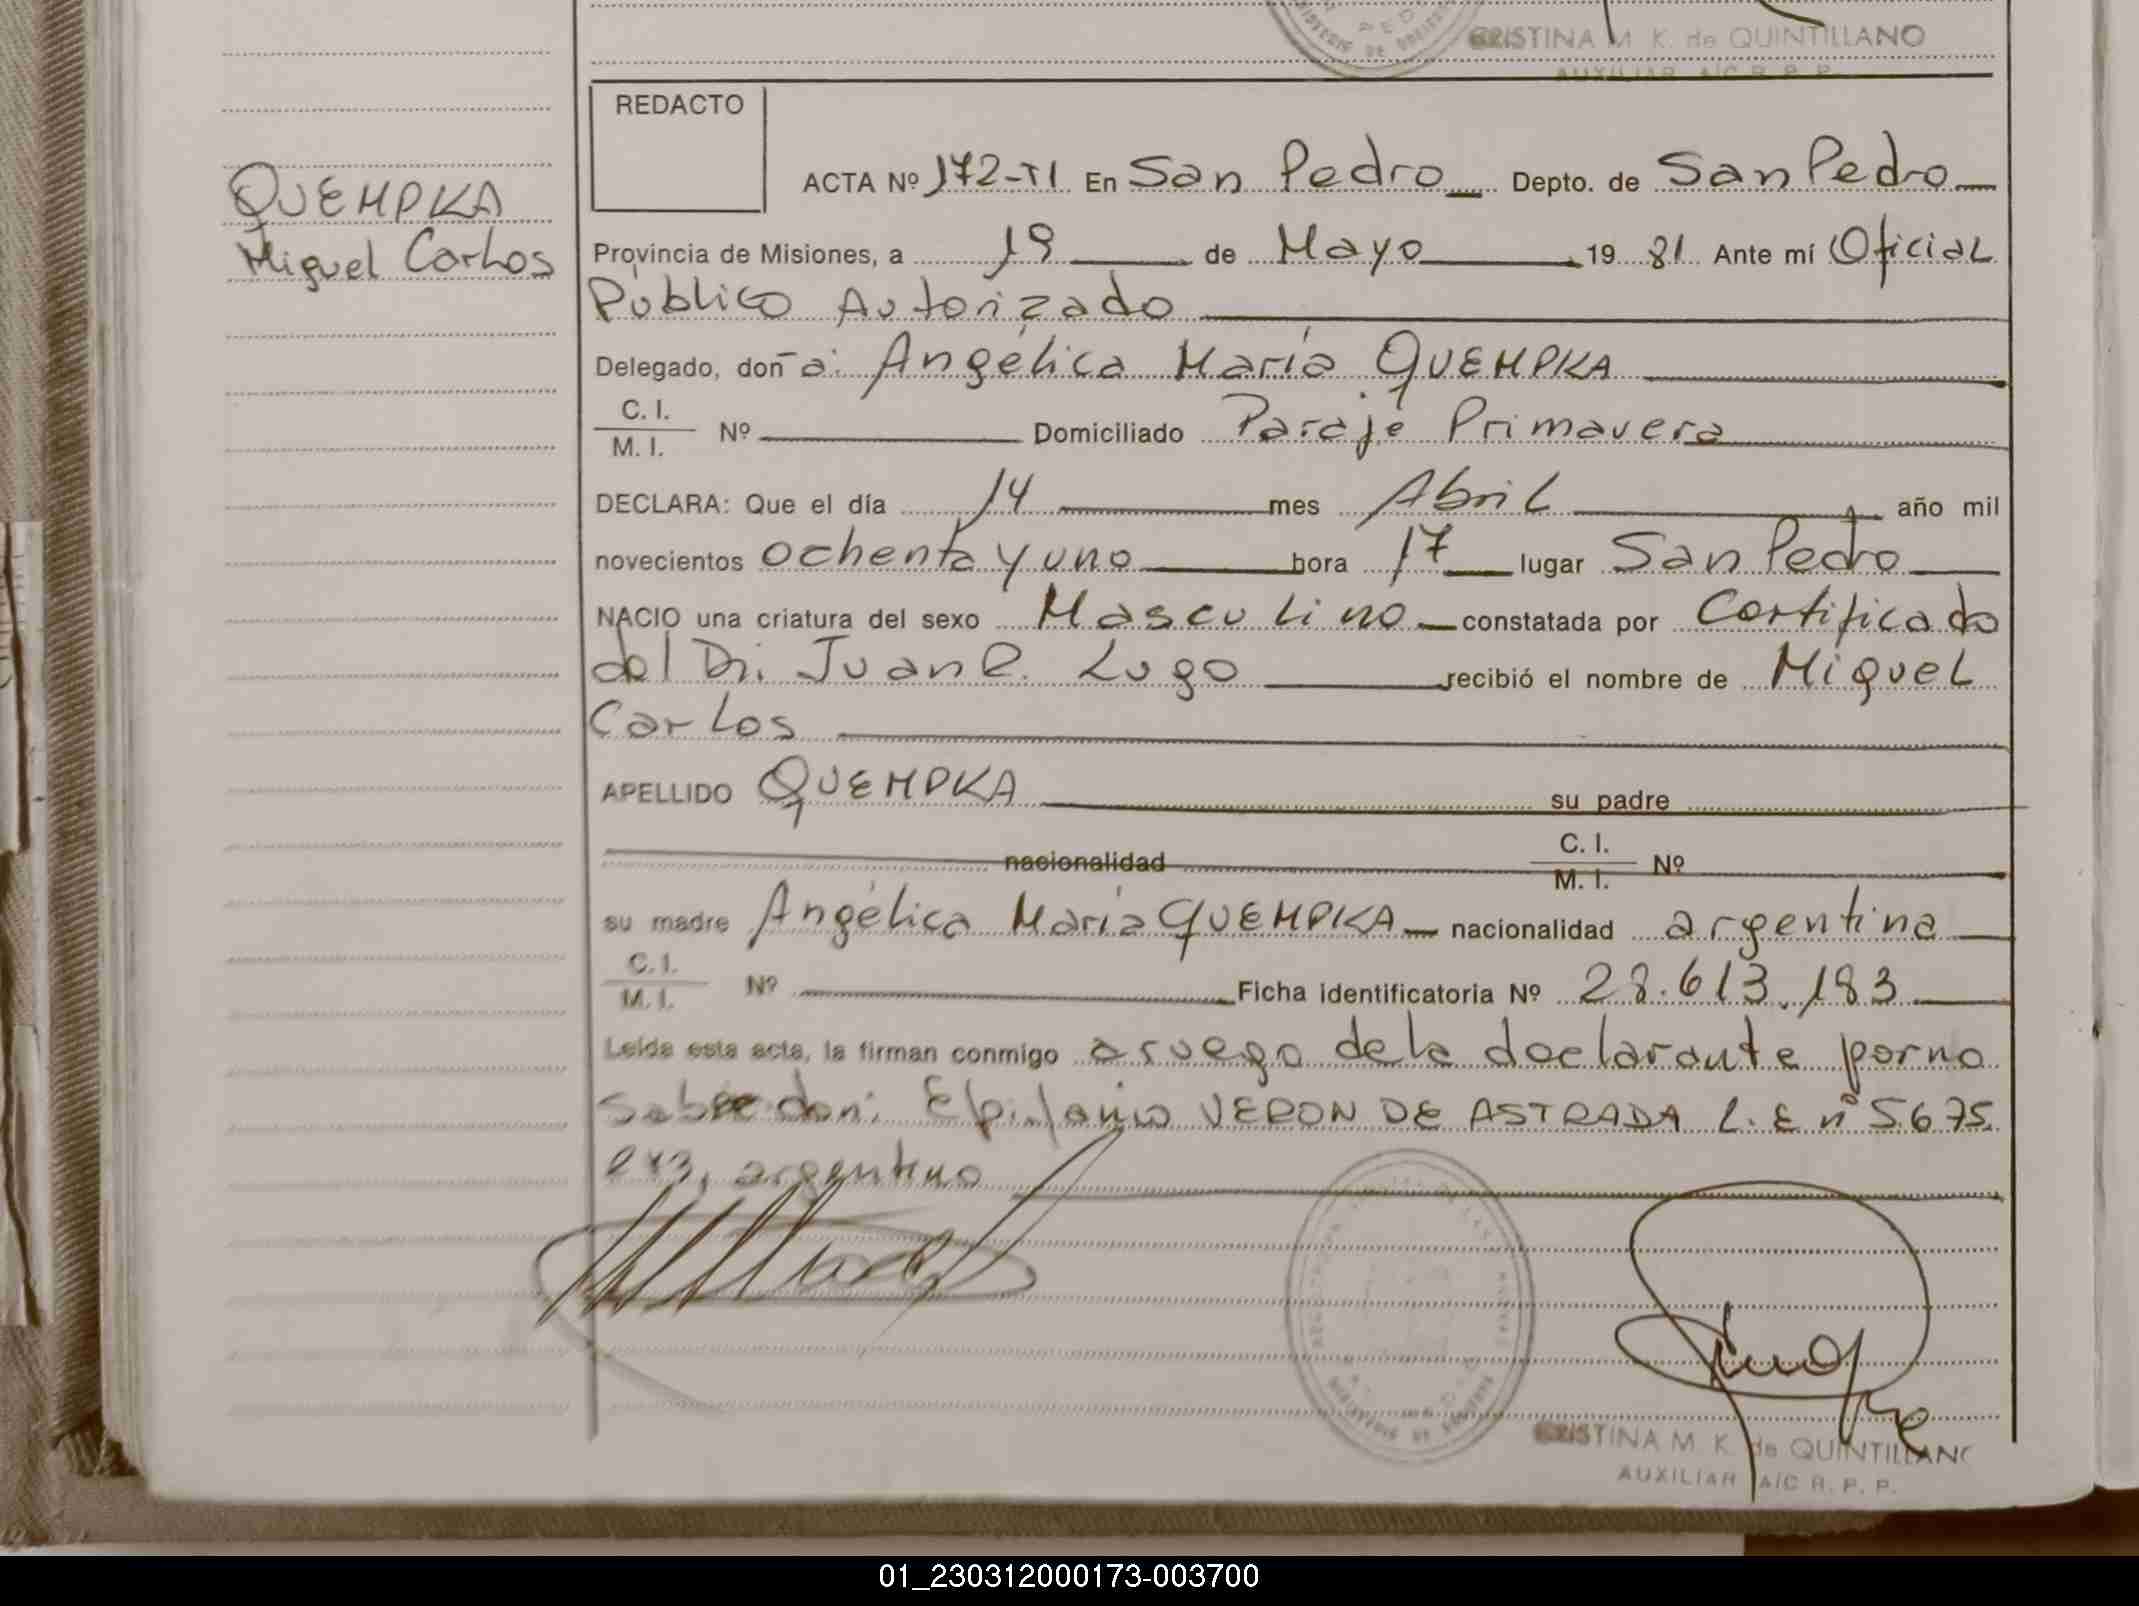 CRISTINA M. K. de QUINTILLANO
AUXILIAR A/C R. P. P.
REDACTO
ACTA Nº 172-TI En San Pedro Depto. de San Pedro
QUEMPKA
Miguel Carlos
Provincia de Misiones, a 19 de Mayo 19 81 Ante mí Oficial
Público Autorizado
Delegado, doña: Angélica María QUEMPKA
C. I.
M. I. Nº Domiciliado Paraje Primavera
DECLARA: Que el día 14 mes Abril año mil
novecientos ochenta y uno hora 17 lugar San Pedro
NACIO una criatura del sexo Masculino constatada por Certificado
del Dr. Juan R. Lugo recibió el nombre de Miguel
Carlos
APELLIDO QUEMPKA su padre
nacionalidad C. I.
M. I. Nº
su madre Angélica María QUEMPKA nacionalidad argentina
C. I.
M. I. Nº Ficha identificatoria Nº 28.613.183
Leída esta acta, la firman conmigo a ruego de la declarante por no
saber don: Epifanio VERON DE ASTRADA L.E nº 5.675.
argentino
CRISTINA M. K. de QUINTILLANO
AUXILIAR A/C R. P. P.
01_230312000173-003700